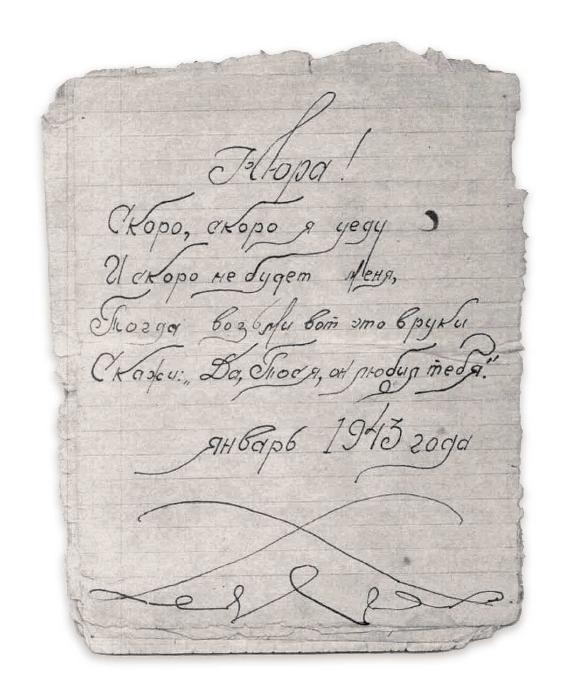 Нюра!
Скоро, скоро я уеду
И скоро не будет меня,
Тогда возьми вот это в руки
Скажи: „Да, Тося, он любил тебя."
январь 1943 года